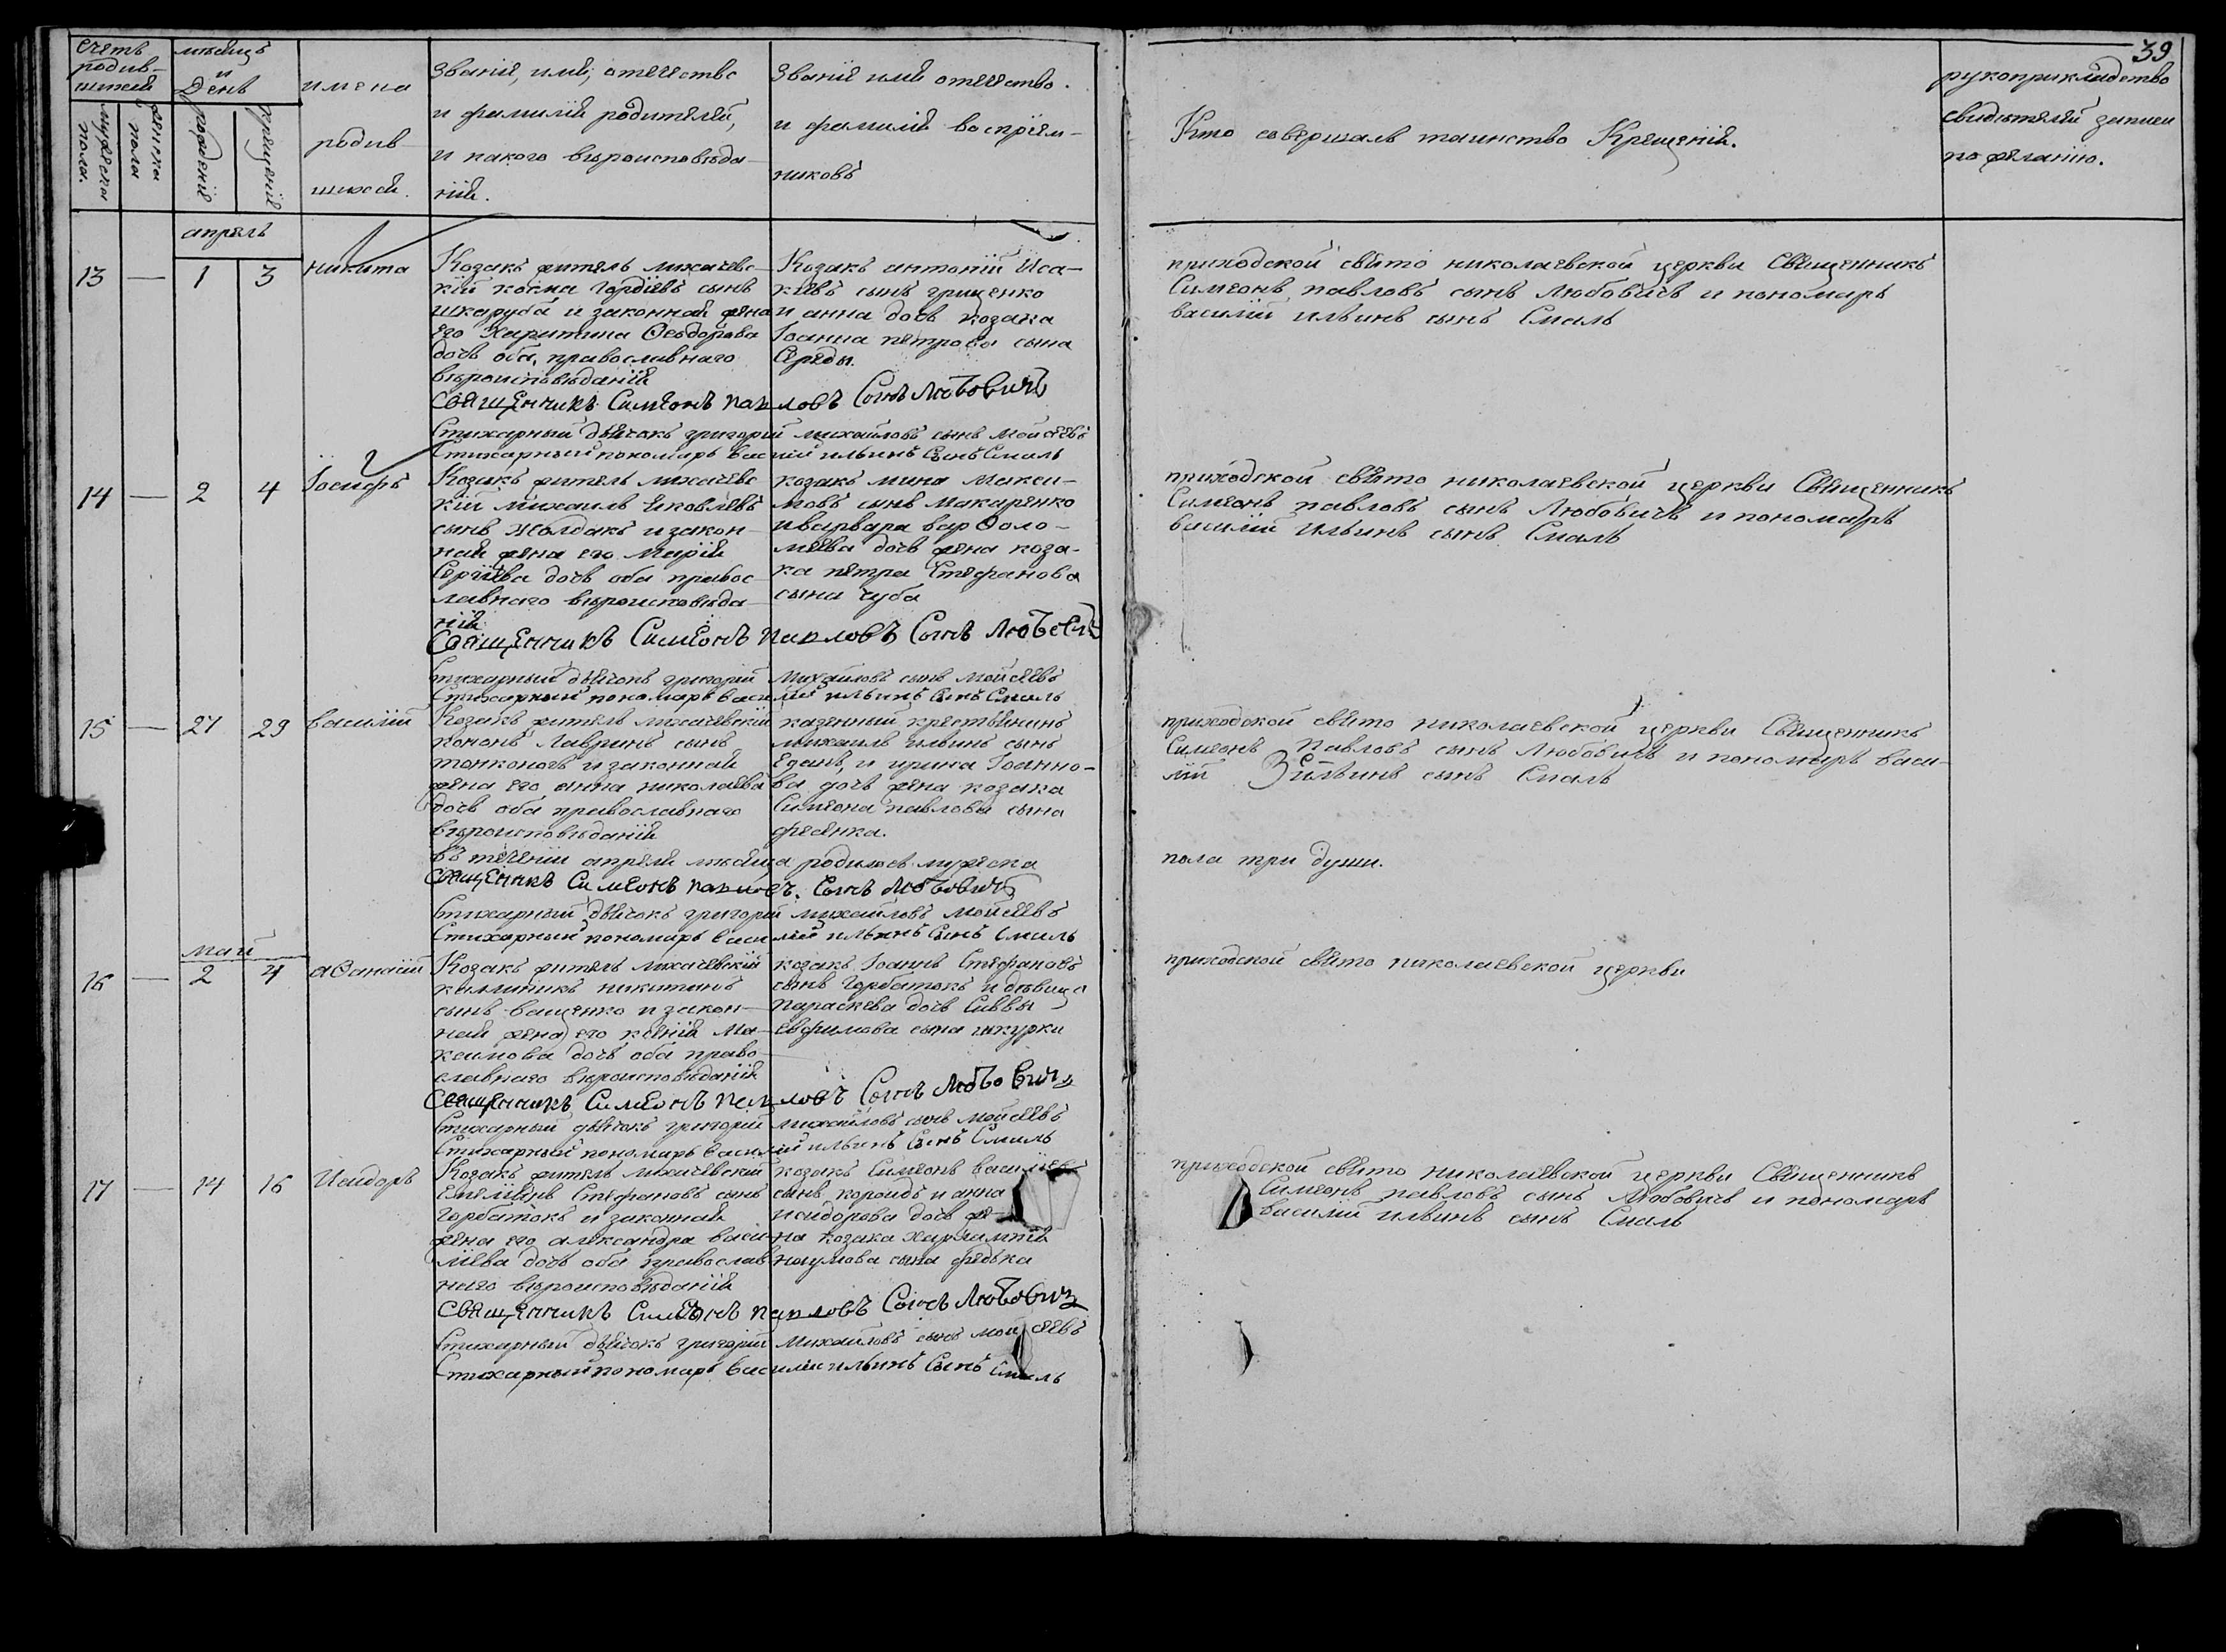 39
Счетъ родив-шихся
мѣсяцъ и День
имена родив-шихся.
Званіе, имя, отечество
и фамилія родителей,
и какого вѣроисповѣда-
нія.
Званіе имя отечество.
и фамилія воспріем-
никовъ
Кто совершалъ таинство Крещенія.
рукоприкладство
свидѣтелей записи
по желанію.
мужеска пола.
женска пола
рожденія
крещенія
апрель
13 — 1 3 никита
Козакъ житель лихачевс-
кій косма Гордіевъ сынъ
шкаруба и законная жена
его Харитина Ѳеодорова
дочь оба, православнаго
вѣроисповѣданія
Козакъ антоній Иса-
кіевъ сынъ грищенко
и анна дочь козака
Іоанна петрова сына
Середы.
приходской свято николаевской церкви Священникъ
Симеонъ павловъ сынъ Любовичъ и пономарь
василій ильинъ сынъ Смаль
Священникъ Симеонъ павловъ Сынъ Любовичъ
Стихарный дьячокъ григорій михайловъ сынъ Мойсеевъ
Стихарный пономарь василій ильинъ Сынъ Смаль
14 — 2 4 Іосифъ
Козакъ житель лихачевс-
кій михаилъ Яковлевъ
сынъ Жолдакъ и закон-
ная жена его Марія
Сергіева дочь оба правос-
лавнаго вѣроисповѣда-
нія
козакъ мина Макси-
мовъ сынъ макаренко
и варвара варѲоло-
меева дочь жена коза-
ка петра Стефанова
сына чуба
приходской свято николаевской церкви Священникъ
Симеонъ павловъ сынъ Любовичъ и пономарь
василій ильинъ сынъ Смаль
Священникъ Симеонъ павловъ Сынъ Любовичъ
Стихарный дьячокъ григорій михайловъ сынъ мойсеевъ
Стихарный пономарь василій ильинъ Сынъ Смаль
15 — 27 29 василій
Козакъ житель лихачевскій
кононъ Лавринъ сынъ
тонконогъ и законная
жена его анна николаева
дочь оба православнаго
вѣроисповѣданія
казенный крестьянинъ
михаилъ ильинъ сынъ
и ирина Іоанно-
ва дочь жена козака
Симеона павлова сына
фесенка.
приходской свято николаевской церкви Священникъ
Симеонъ Павловъ сынъ Любовичъ и пономарь васи-
лій ильинъ сынъ Смаль
въ теченіи апреля мѣсяца родилось мужеска
пола три души.
Священникъ Симеонъ павловъ Сынъ Любовичъ
Стихарный дьячокъ григорій михайловъ мойсеевъ
Стихарный пономарь василій ильинъ Сынъ Смаль
май
16 — 2 4 аѲанасій
Козакъ житель лихачевскій
каллиникъ никитинъ
сынъ ващенко и закон-
ная жена его ксенія Ма-
ксимова дочь оба право-
славнаго вѣроисповѣданія
козакъ Іоаннъ Стефановъ
сынъ Горбатокъ и дѣвица
параскева дочь Саввы
Евфимова сына шкурки
приходской свято николаевской церкви
Священникъ Симеонъ павловъ Сынъ Любовичъ
Стихарный дьячокъ григорій михайловъ сынъ мойсеевъ
Стихарный пономарь василій ильинъ Сынъ Смаль
17 — 14 16 Исидоръ
Козакъ житель лихачевскій
Емеліянъ Стефановъ сынъ
горбатокъ и законная
жена его александра васи-
ліева дочь оба православ
наго вѣроисповѣданія
козакъ Симеонъ василіевъ
сынъ короидъ и анна
исидорова дочь же-
на козака харлампія
наумова сына федька
приходской свято николаевской церкви Священникъ
Симеонъ павловъ сынъ Любовичъ и пономарь
василій ильинъ сынъ Смаль
Священникъ Симеонъ павловъ Сынъ Любовичъ
Стихарный дьячокъ григорій Михайловъ сынъ мойсеевъ
Стихарный пономарь василій ильинъ Сынъ Смаль